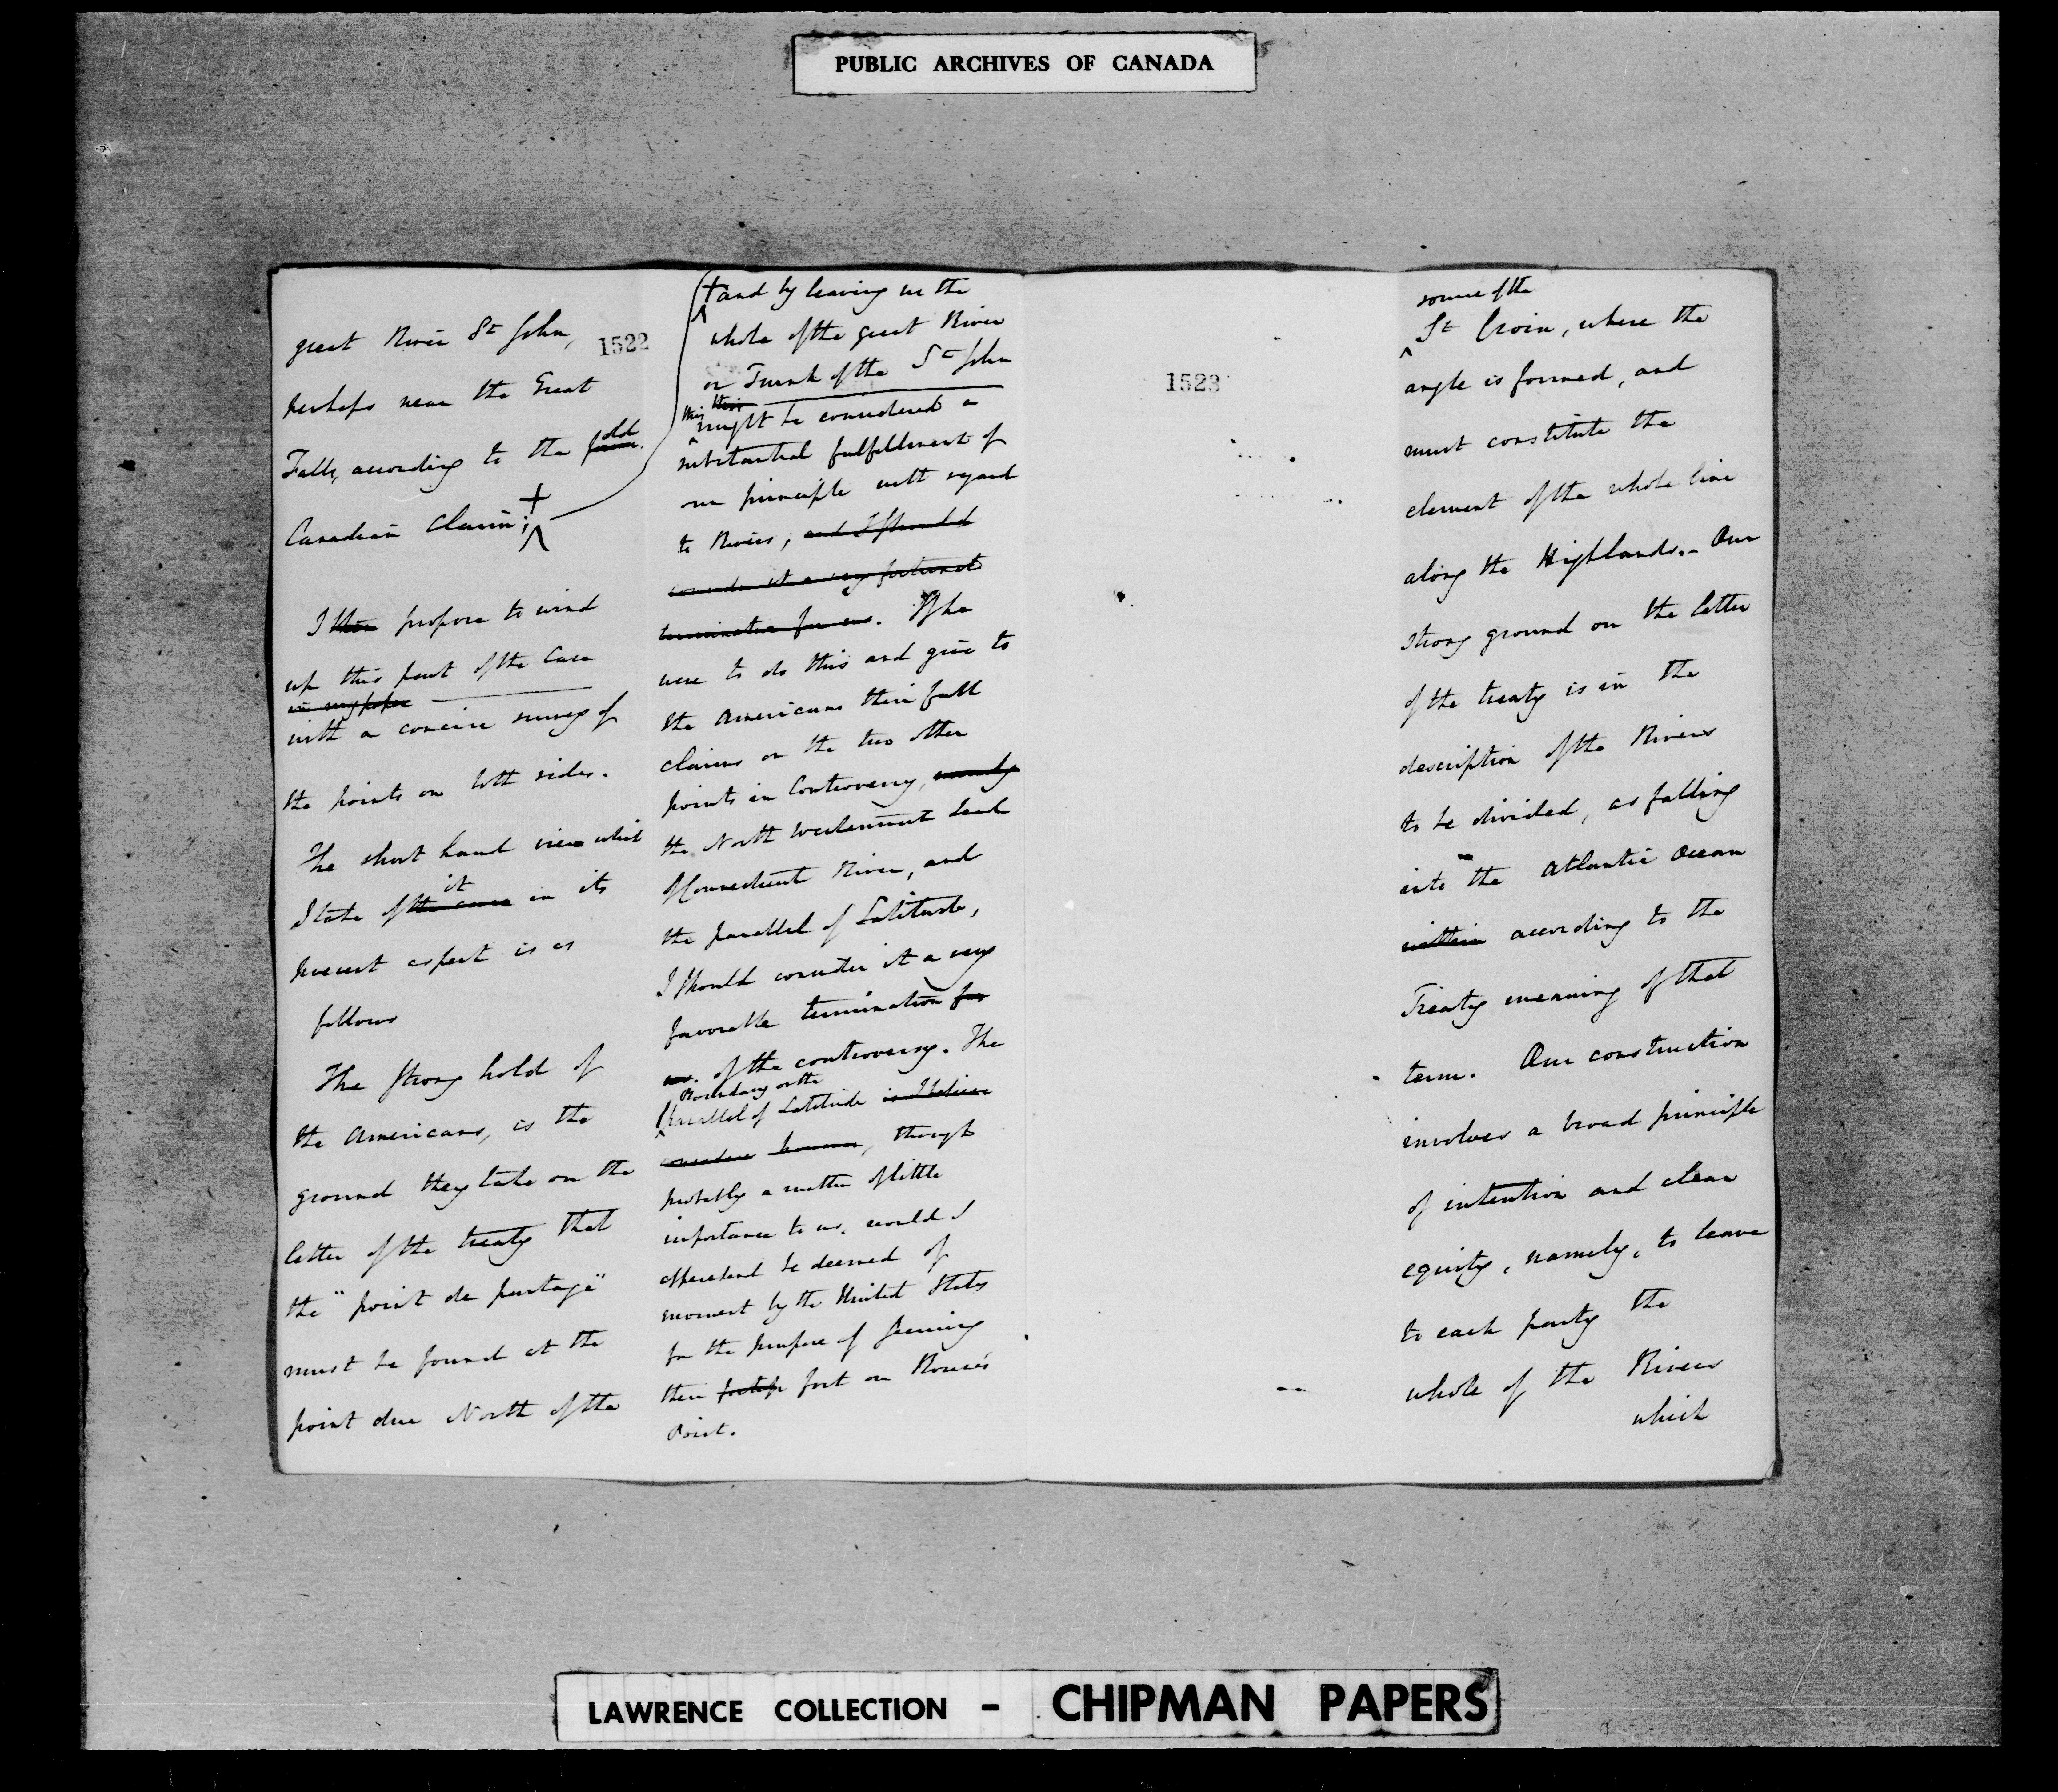 PUBLIC ARCHIVES OF CANADA
1522
great River St John,
perhaps near the Great
Falls, according to the old
Canadian Claim; +
I then propose to wind
up this part of the Case
in my paper
with a concise survey of
the points on both sides.
The short hand view which
I take of the case it in its
present aspect is as
follows
The strong hold of
the Americans, is the
ground they take on the
letter of the treaty that
the "point de partage"
must be found at the
point due North of the
+ and by leaving us the
whole of the great River
or Trunk of the St John
this
might be considered a
substantial fulfillment of
our principle with regard
to Rivers, and I should
consider it a very fortunate
termination for us. If he
were to do this and give to
the Americans their full
claims on the two other
points in Controversy, namely
the North Westernmost head
of Connecticut River, and
the parallel of Latitude,
I should consider it a very
favorable termination for
us. of the controversy. The
Boundary on the
parallel of Latitude is I believe
however, though
probably a matter of little
importance to us, would I
apprehend be deemed of
moment by the United States
for the purpose of securing
their fort on Rouse's
Point.
1523
source of the
St Croix, where the
angle is formed, and
must constitute the
element of the whole line
along the Highlands. - Our
strong ground on the letter
of the treaty is in the
description of the Rivers
to be divided, as falling
into the Atlantic Ocean
within according to the
Treaty meaning of that
term. Our construction
involves a broad principle
of intention and clear
equity, namely, to leave
to each party the
whole of the Rivers
which
LAWRENCE COLLECTION - CHIPMAN PAPERS